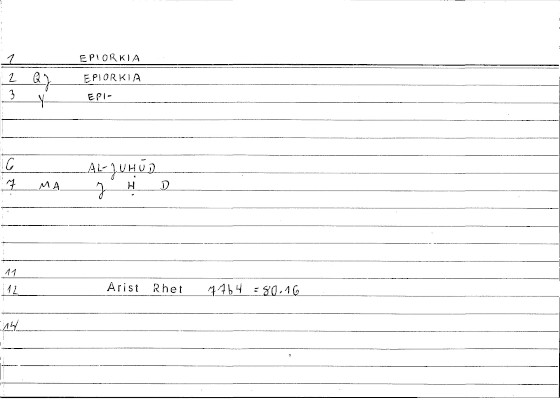 1 EPIORKIA
2 QJ EPIORKIA
3 Y EPI-
6 AL-JUḤŪD
7 MA J Ḥ D
11
12 Arist Rhet 77b4 =80.16
14